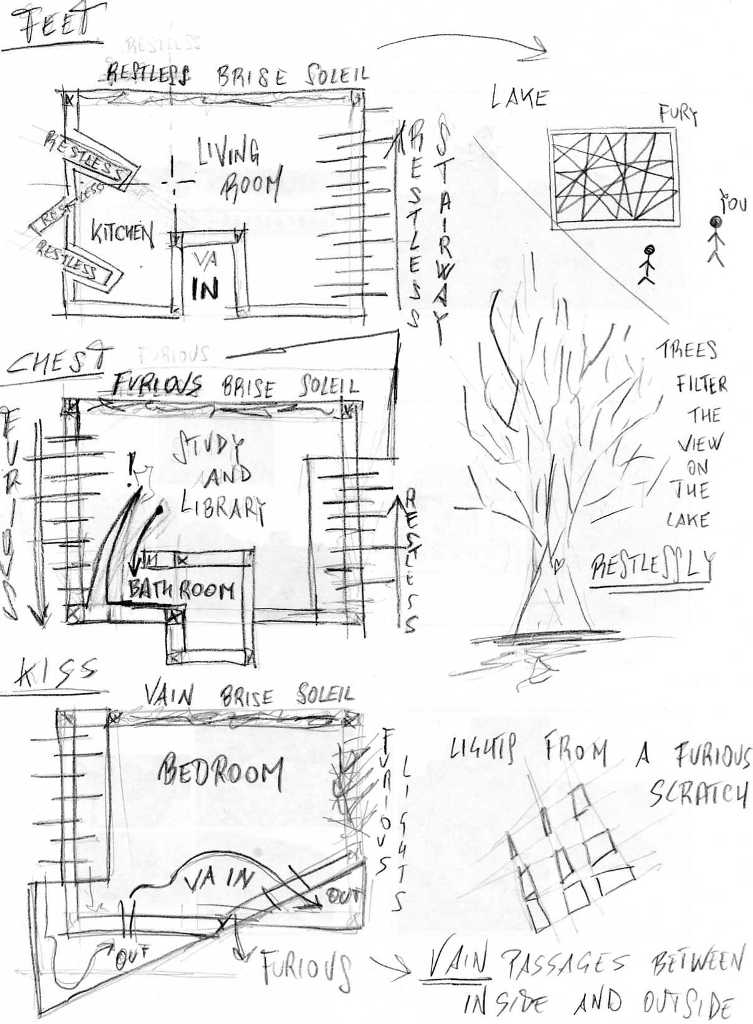 FEET
RESTLESS
RESTLESS BRISE SOLEIL
LIVING
ROOM
RESTLESS
RESTLESS
RESTLESS
KITCHEN
VA
IN
RESTLESS
STAIRWAY
LAKE
FURY
YOU
TREES
FILTER
THE
VIEW
ON
THE
LAKE
RESTLESSLY
CHEST
FURIOUS
FURIOUS BRISE SOLEIL
FURIOUS
STUDY
AND
LIBRARY
BATHROOM
RESTLESS
KISS
VAIN BRISE SOLEIL
BEDROOM
FURIOUS
LIGHTS
VA IN
OUT
OUT
FURIOUS
LIGHTS FROM A FURIOUS
SCRATCH
VAIN PASSAGES BETWEEN
INSIDE AND OUTSIDE